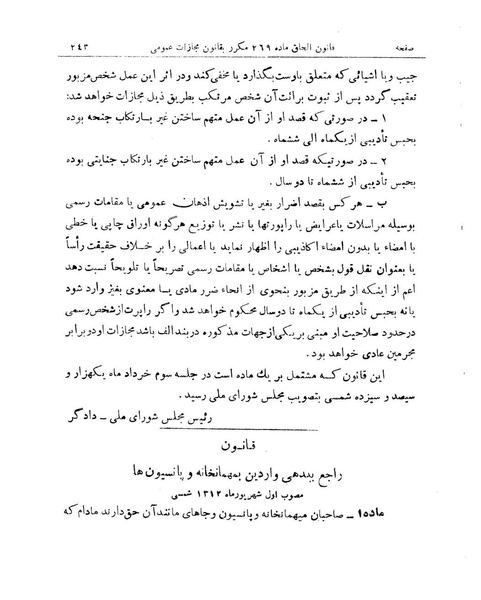 صفحه قانون الحاق ماده ۲۶۹ مکرر بقانون مجازات عمومی ۲۴۳
جیب و یا اشیائی که متعلق باوست بگذارد یا مخفی کند و در اثر این عمل شخص مزبور
تعقیب گردد پس از ثبوت برائت آن شخص مرتکب بطریق ذیل مجازات خواهد شد:
۱ ـ در صورتی که قصد او از آن عمل متهم ساختن غیر بارتکاب جنحه بوده
بحبس تأدیبی از یکماه الی ششماه .
۲ ـ در صورتیکه قصد او از آن عمل متهم ساختن غیر بارتکاب جنایتی بوده
بحبس تأدیبی از ششماه تا دو سال .
ب ـ هر کس بقصد اضرار بغیر یا تشویش اذهان عمومی یا مقامات رسمی
بوسیله مراسلات یا عرایض یا راپورتها یا نشر یا توزیع هرگونه اوراق چاپی یا خطی
با امضاء یا بدون امضاء اکاذیبی را اظهار نماید یا اعمالی را بر خلاف حقیقت رأساً
یا بعنوان نقل قول بشخص یا اشخاص یا مقامات رسمی تصریحاً یا تلویحاً نسبت دهد
اعم از اینکه از طریق مزبور بنحوی از انحاء ضرر مادی یا معنوی بغیر وارد شود
یا نه بحبس تأدیبی از یکماه تا دوسال محکوم خواهد شد و اگر راپرت از شخص رسمی
در حدود صلاحیت او مبنی بر یکی از جهات مذکوره در بند الف باشد مجازات او دو برابر
مجرمین عادی خواهد بود .
این قانون که مشتمل بر یك ماده است در جلسه سوم خرداد ماه یکهزار و
سیصد و سیزده شمسی بتصویب مجلس شورای ملی رسید .
رئیس مجلس شورای ملی ـ دادگر
قانون
راجع ببدهی واردین بمهمانخانه و پانسیون ها
مصوب اول شهریور ماه ۱۳۱۲ شمسی
ماده۱ ـ صاحبان میهمانخانه و پانسیون و جاهای مانند آن حق دارند مادام که